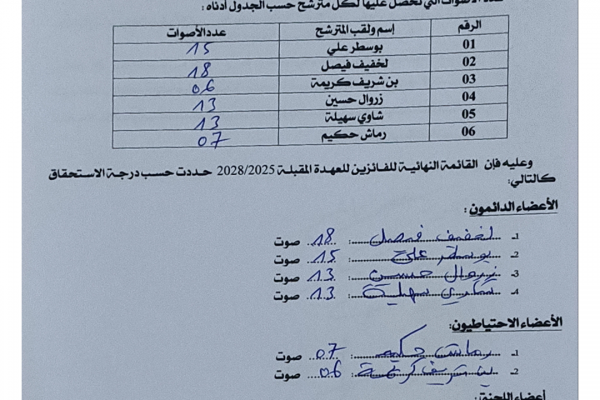 عدد الأصوات التي تحصل عليها لكل مترشح حسب الجدول أدناه :
الرقم إسم ولقب المترشح عدد الأصوات
01 بوسطر علي 15
02 لخفيف فيصل 18
03 بن شريف كريمة 06
04 زروال حسين 13
05 شاوي سهيلة 13
06 رماش حكيم 07
وعليه فإن القائمة النهائية للفائزين للعهدة المقبلة 2028/2025 حددت حسب درجة الاستحقاق
كالتالي:
الأعضاء الدائمون :
1- لخفيف فيصل : 18 صوت
2- بوسطر علي : 15 صوت
3- زروال حسين : 13 صوت
4- شاوي سهيلة : 13 صوت
الأعضاء الاحتياطيون:
1- رماش حكيم : 07 صوت
2- بن شريف كريمة : 06 صوت
أعضاء اللجنة: